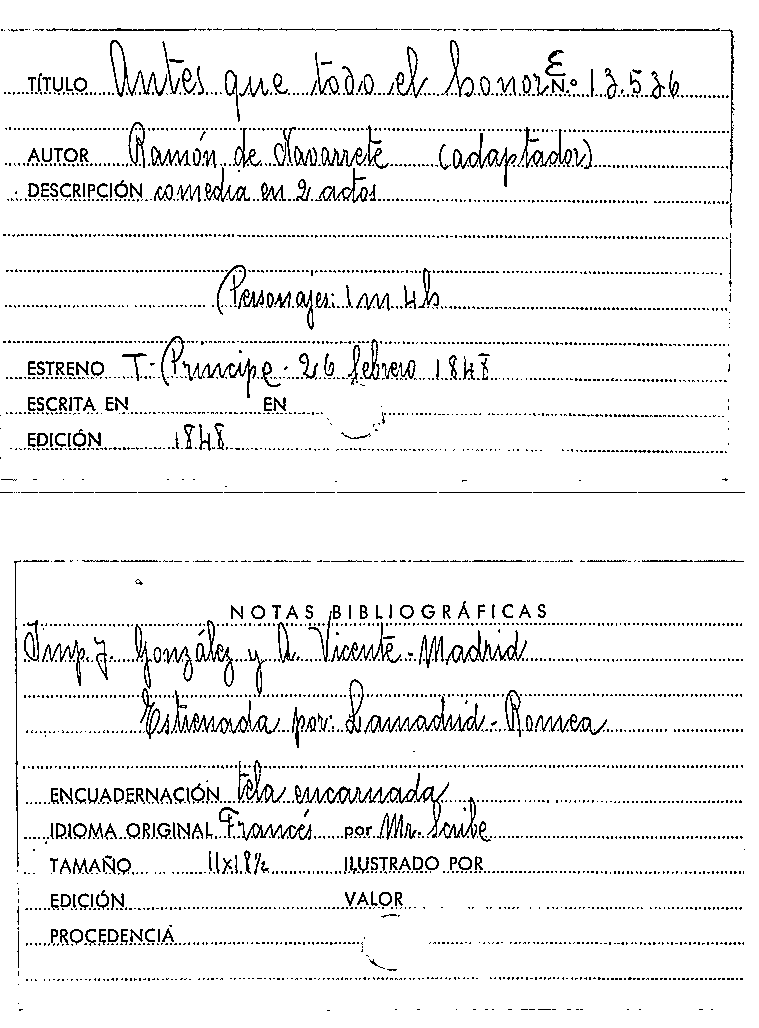 TÍTULO Antes que todo el honor E N.º 13.536
AUTOR Ramón de Navarrete (adaptador)
DESCRIPCIÓN comedia en 2 actos
Personajes: 1 m 4 h
ESTRENO T. Príncipe - 26 febrero 1848
ESCRITA EN EN
EDICIÓN 1848
NOTAS BIBLIOGRÁFICAS
Imp. J. González y A. Vicente - Madrid
Estrenada por: Lamadrid - Romea
ENCUADERNACIÓN tela encarnada
IDIOMA ORIGINAL Francés por Mr. Scribe
TAMAÑO 11x18½ ILUSTRADO POR
EDICIÓN VALOR
PROCEDENCIA